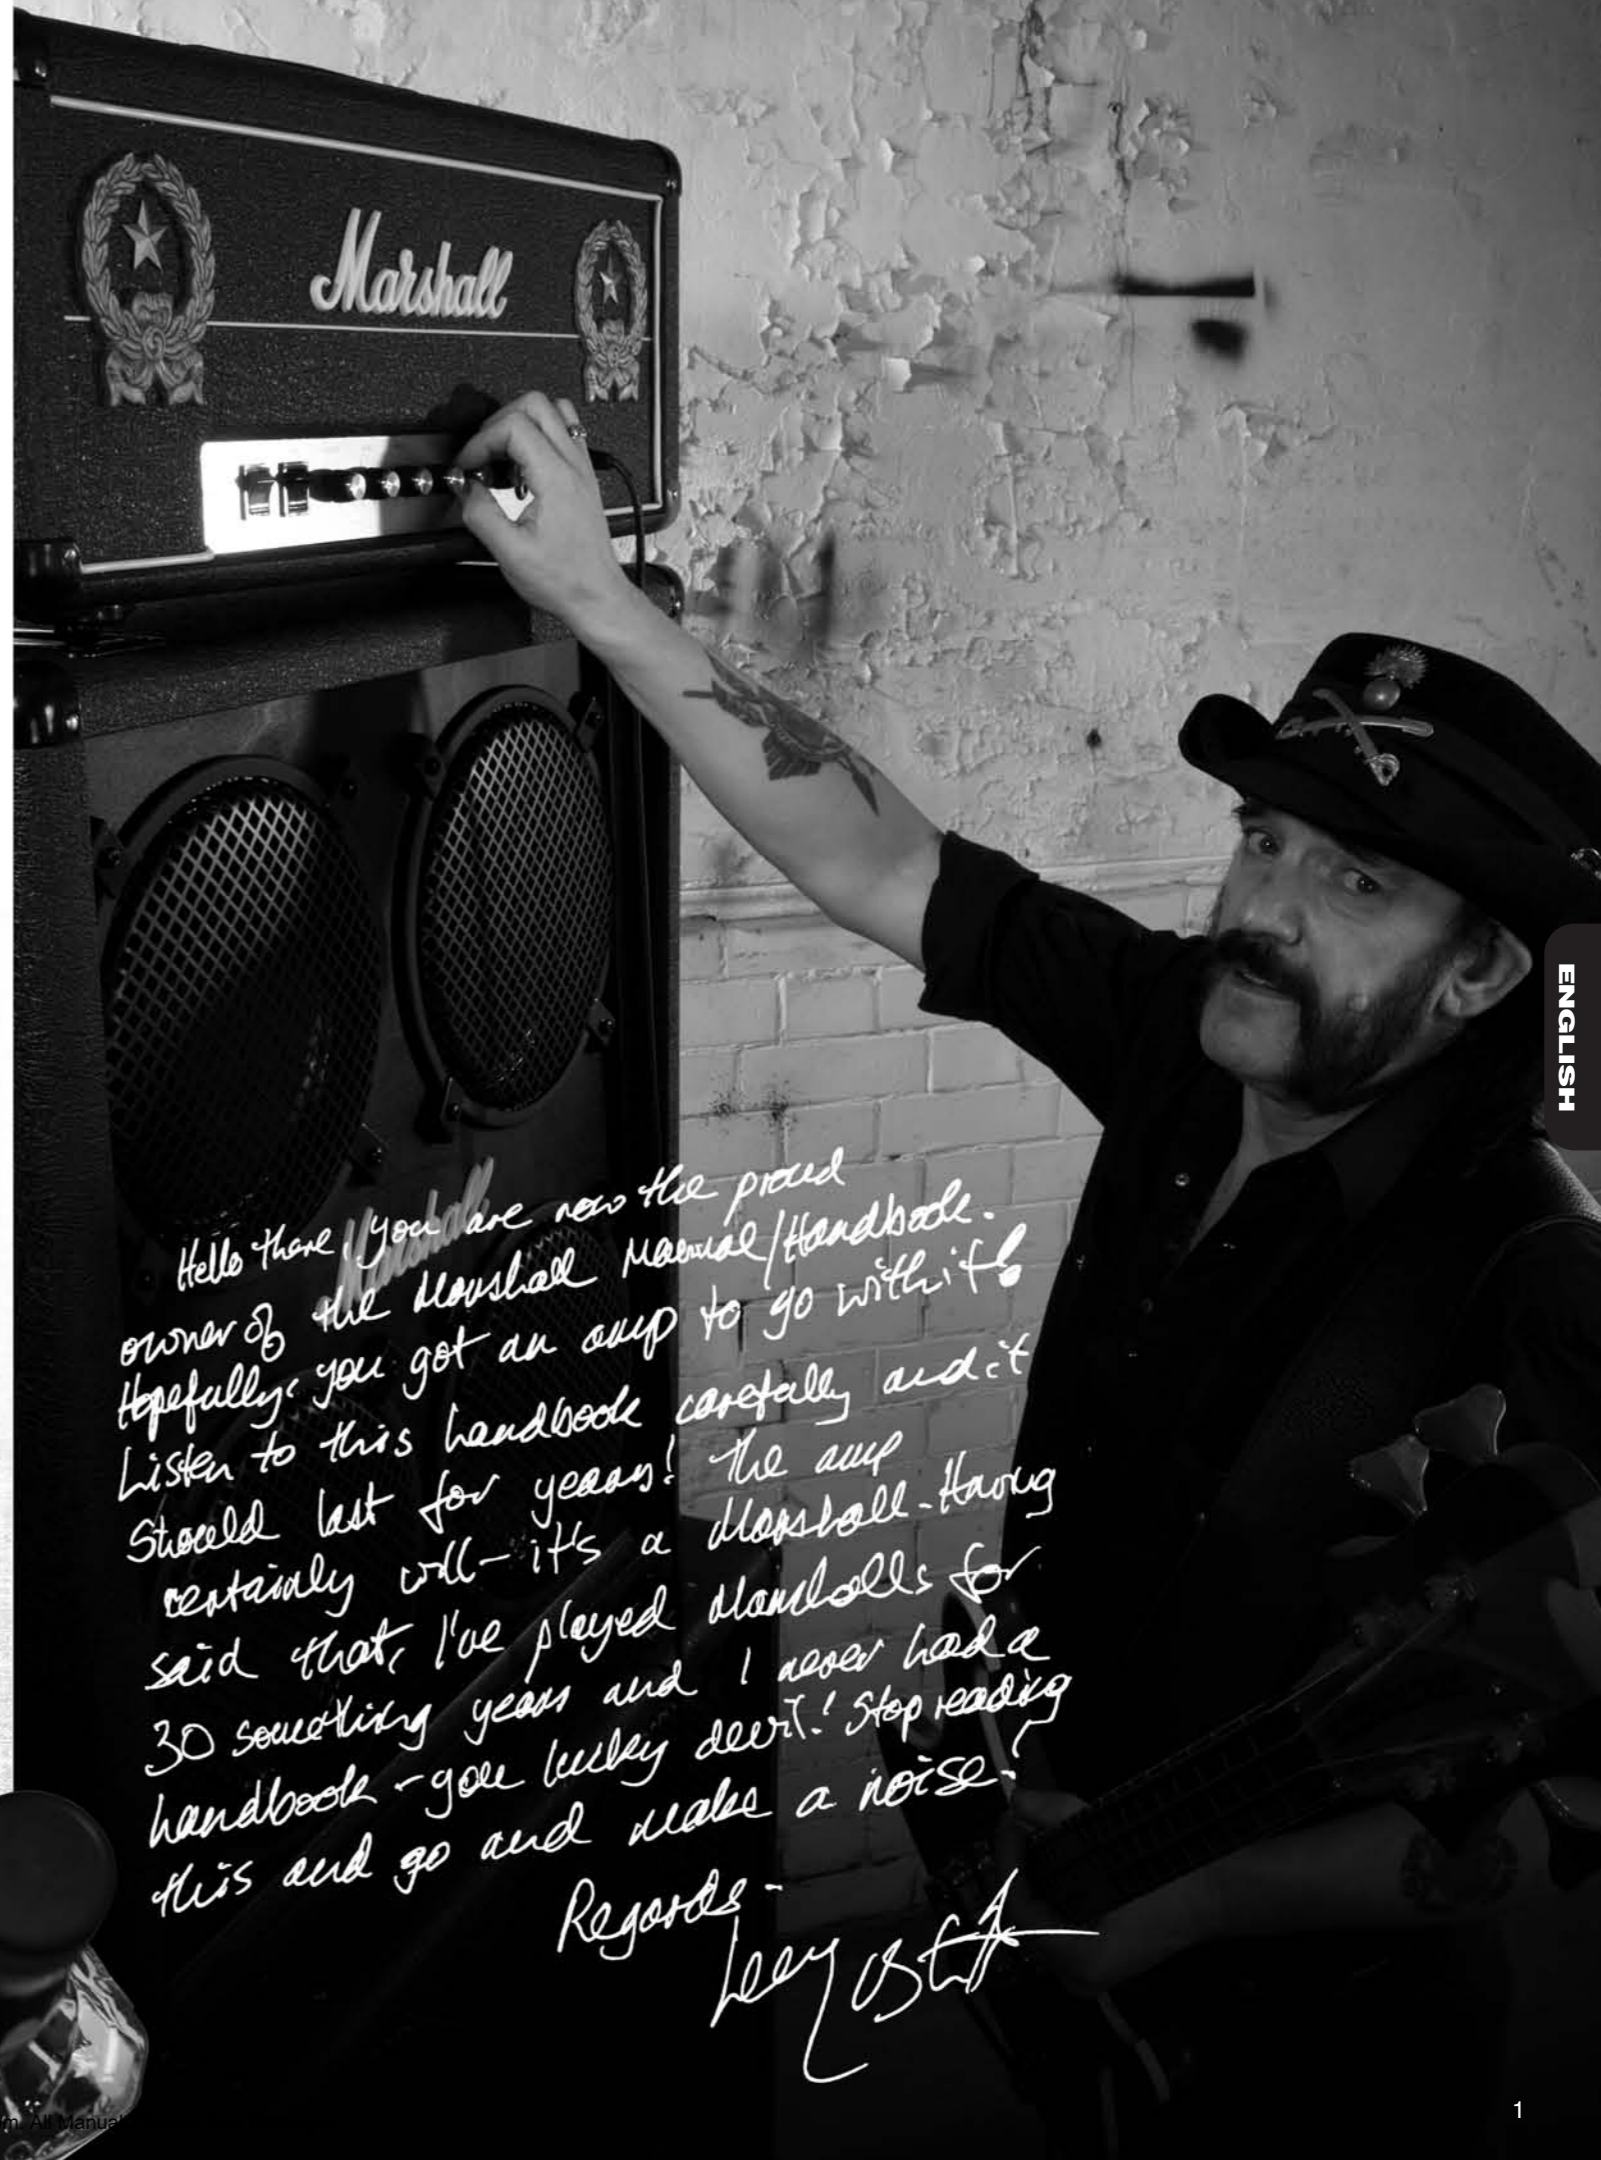 Marshall
ENGLISH
Marshall
Hello there, you are now the proud
owner of the Marshall Manual/Handbook.
Hopefully, you got an amp to go with it!
Listen to this handbook carefully and it
should last for years! The amp
certainly will - it's a Marshall - Having
said that, I've played Marshalls for
30 something years and I never had a
handbook - you lucky devil! Stop reading
this and go and make a noise!
Regards -
m. All Manua
1